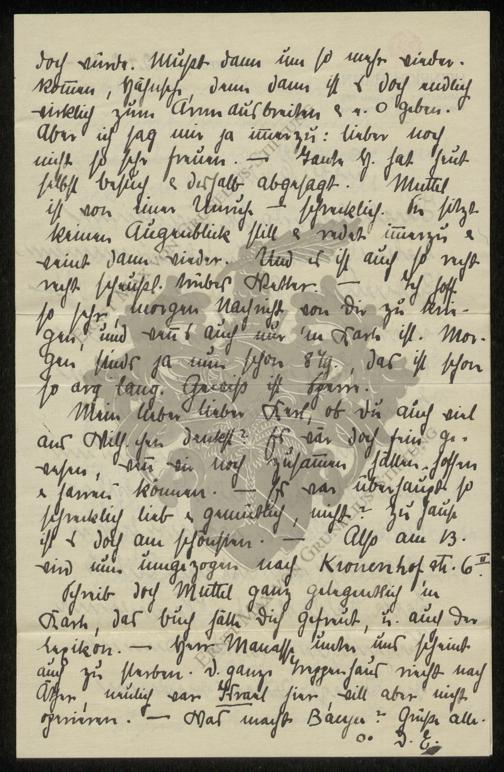 doch würde. Mußt dann um so mehr wieder-
kommen, Hänschen, denn dann ist es doch endlich
wirklich zum Arme ausbreiten & n. O geben.
Aber ich sag mir ja immerzu: lieber noch
nicht so sehr freuen. — Tante H. hat heut
selbst Besuch & deshalb abgesagt. Muttel
ist von einer Unruhe – schrecklich. Sie sitzt
keinen Augenblick still & redet immerzu &
weint dann wieder. Und es ist auch so recht
recht scheußl. trübes Wetter. — Ich hoff
so sehr, morgen Nachricht von Dir zu krie-
gen, und wenn's auch nur 'n Karte ist. Mor-
gen sinds ja nun schon 8 Tg., das ist schon
so arg lang. Gewiß ist Sperre.
Mein lieber lieber Kerl, ob Du auch viel
ans denkst? Es wär doch fein ge-
wesen, wenn wir noch zusammen hätten hoffen
& harren können. — Es war überhaupt so
schrecklich lieb & gemütlich, nicht? Zu Haus
ist's doch am schönsten. — Also am 13.
wird nun umgezogen nach Kronenhofstr. 6 II.
Schreib doch Muttel ganz gelegentlich 'n
Karte, das Buch hätte Dich gefreut, u. auch der
Lexikon. — Herr Manasse unter uns scheint
auch zu sterben. D. ganze Treppenhaus riecht nach
Äther, neulich war Israel hier will aber nicht
operieren. — Was macht ? Grüße alle.
D. E.